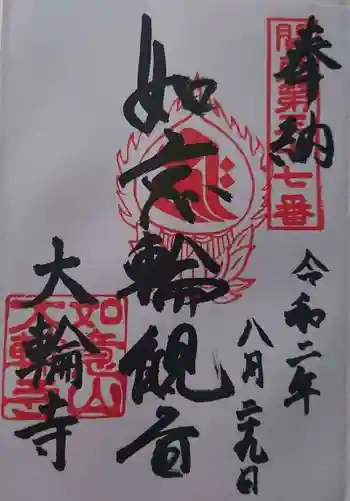 奉納
令和二年
八月二九日
如意輪観音
大輪寺
第
七番
如意山
大輪寺